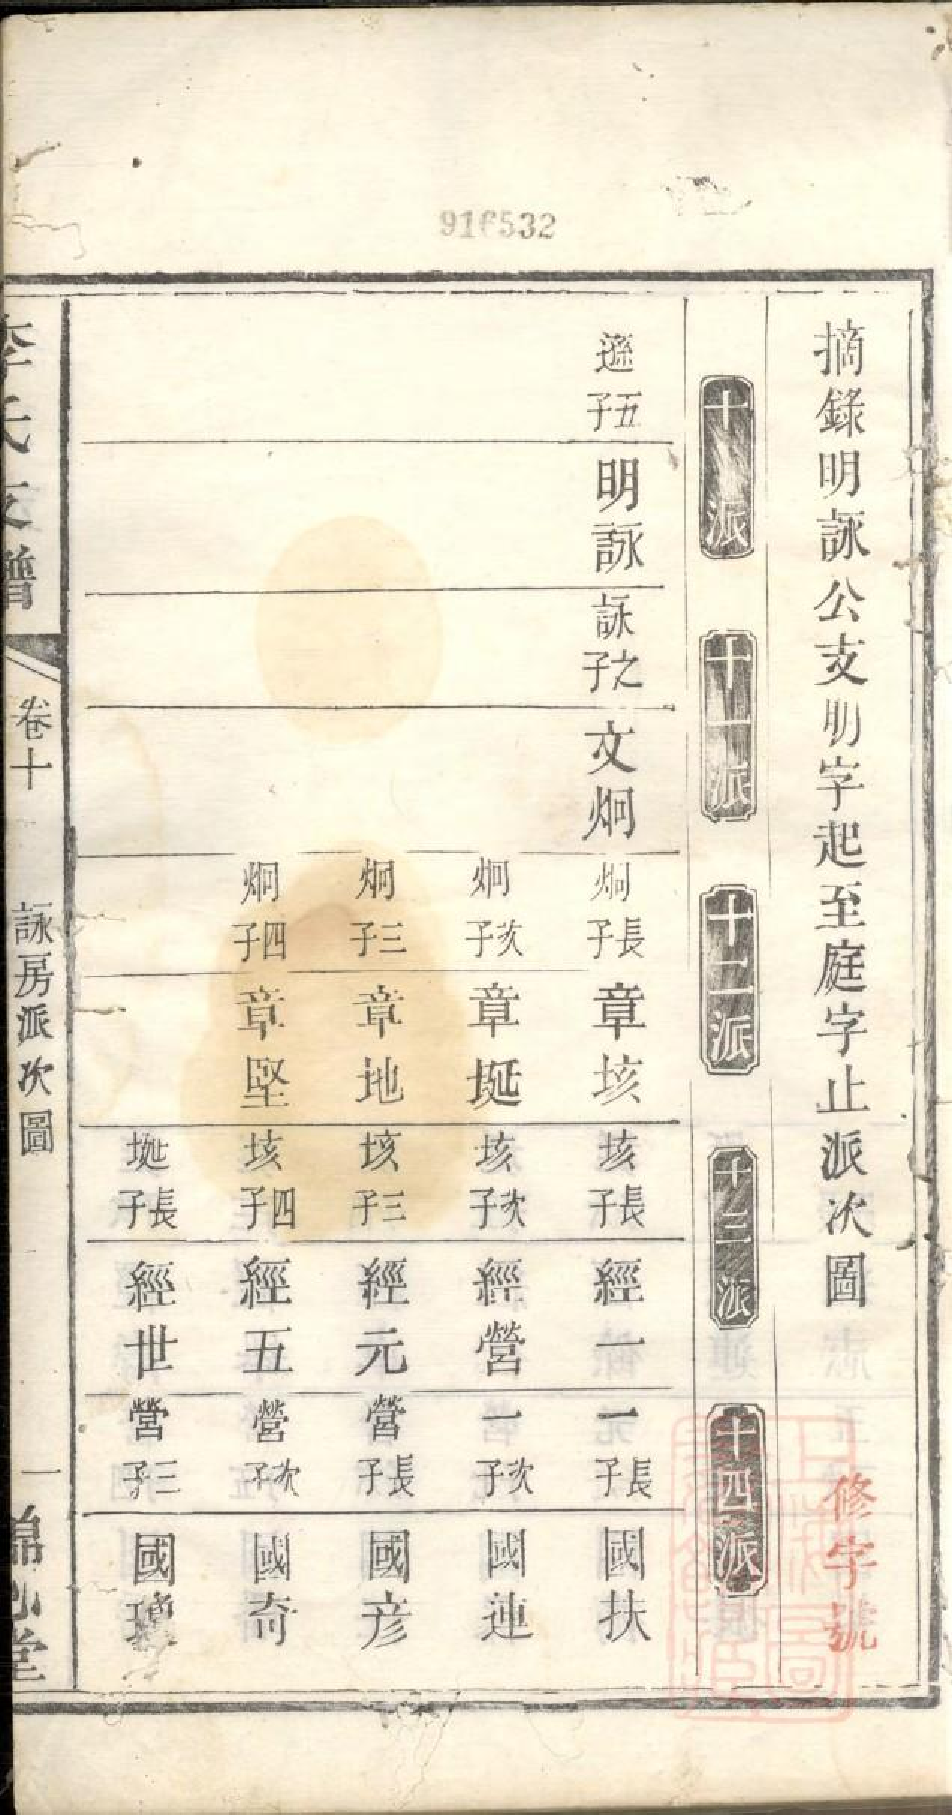 916532
摘錄明詠公支明字起至庭字止派次圖
修字號
十派
十一派
十二派
十三派
十四派
遜五子
明詠
詠之子
文炯
炯長子
章垓
垓長子
經一
一長子
國扶
炯次子
章埏
垓次子
經營
一次子
國連
炯三子
章地
垓三子
經元
營長子
國彥
炯四子
章堅
垓四子
經五
營次子
國奇
埏長子
經世
營三子
國
李氏支譜
卷十
詠房派次圖
一
堂